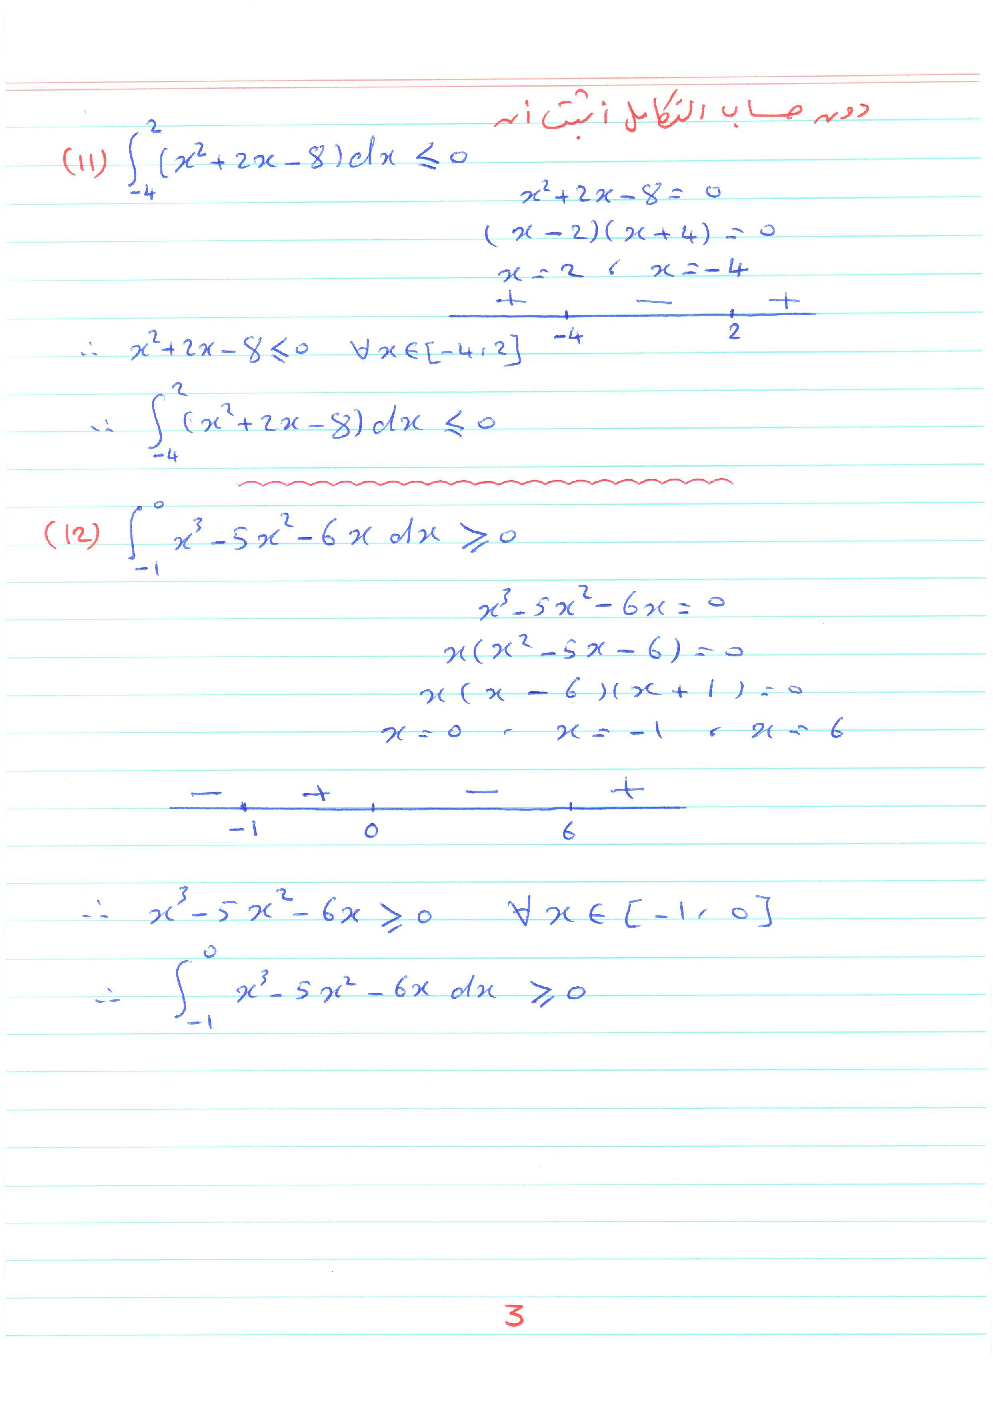 دون حساب التكامل أثبت أن
(11) ∫₋₄² (x² + 2x - 8) dx ≤ 0
x² + 2x - 8 = 0
(x - 2)(x + 4) = 0
x = 2 ، x = -4
+ - +
-4 2
∴ x² + 2x - 8 ≤ 0 ∀x∈[-4، 2]
∴ ∫₋₄² (x² + 2x - 8) dx ≤ 0
(12) ∫₋₁⁰ x³ - 5x² - 6x dx ≥ 0
x³ - 5x² - 6x = 0
x(x² - 5x - 6) = 0
x(x - 6)(x + 1) = 0
x = 0 ، x = -1 ، x = 6
- + - +
-1 0 6
∴ x³ - 5x² - 6x ≥ 0 ∀x∈[-1، 0]
∴ ∫₋₁⁰ x³ - 5x² - 6x dx ≥ 0
3